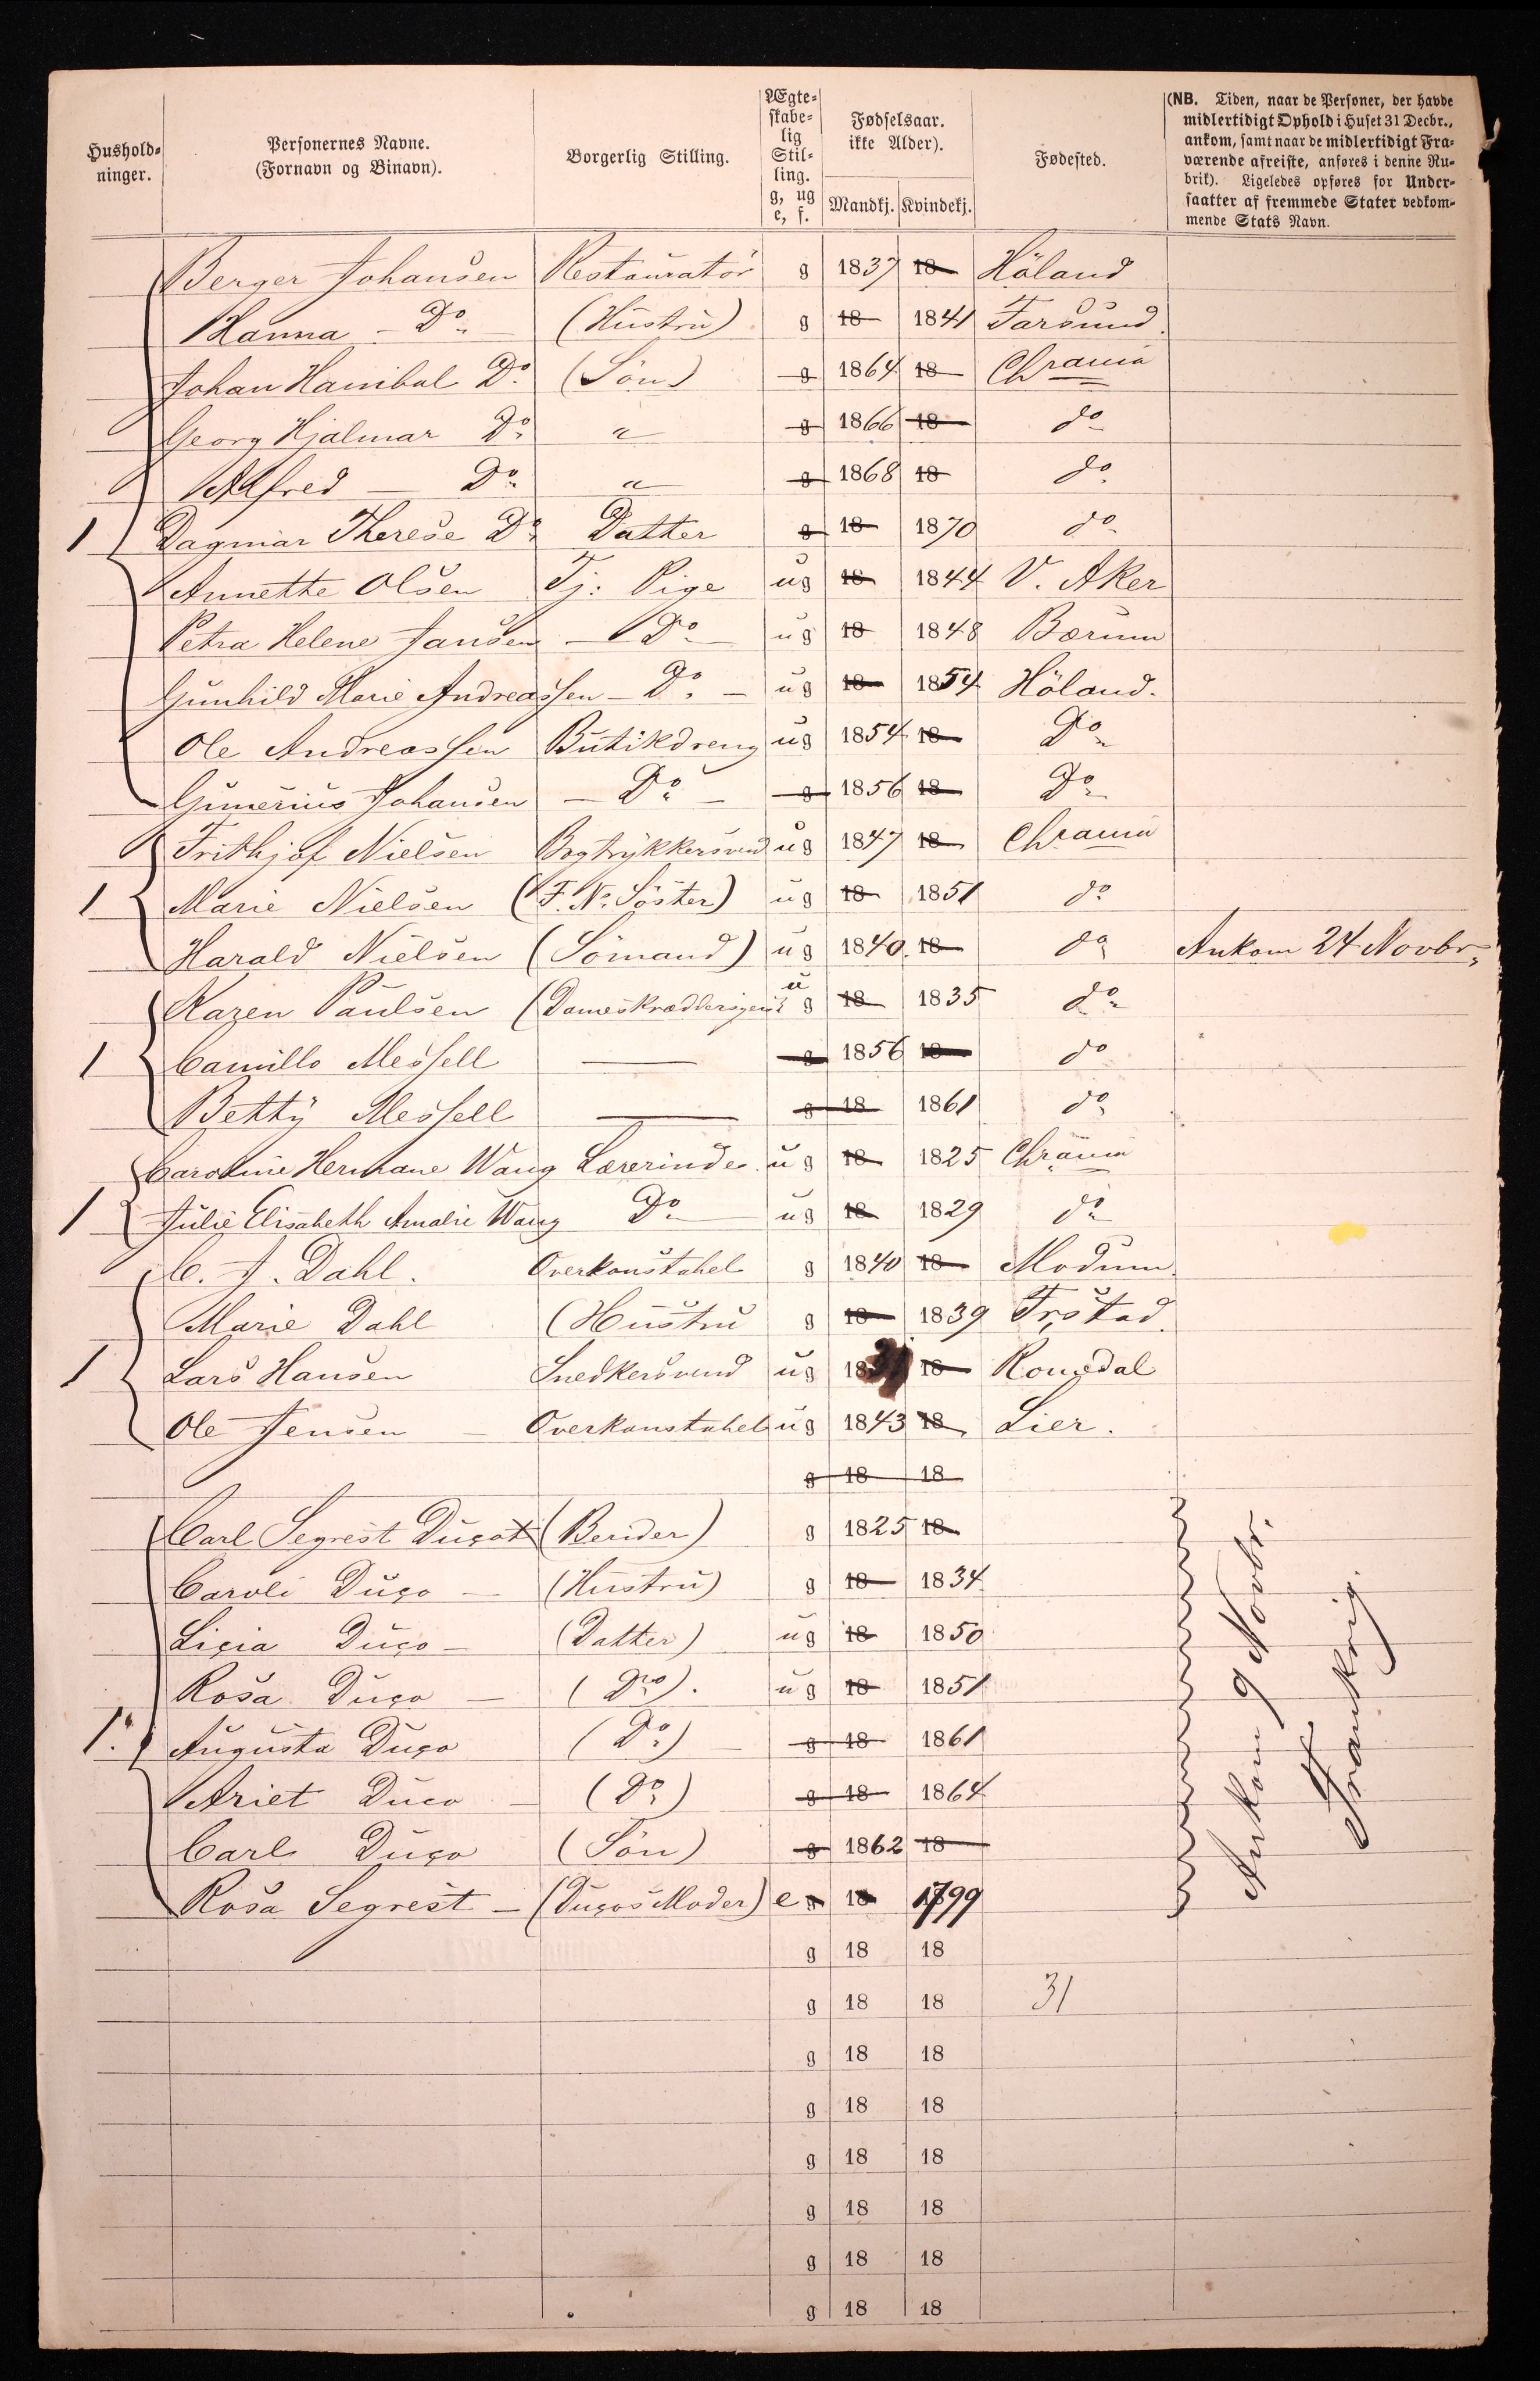 Hushold-
ninger.
Personernes Navne.
(Fornavn og Binavn).
Borgerlig Stilling.
Ægte-
skabe-
lig
Stil-
ling.
g, ug
e, f.
Fødselsaar.
ikke Alder).
Mandkj. Kvindekj.
Fødested.
(NB. Tiden, naar de Personer, der havde
midlertidigt Ophold i Huset 31 Decbr.,
ankom, samt naar de midlertidigt Fra-
værende afreiste, anføres i denne Ru-
brik). Ligeledes opføres for Under-
saatter af fremmede Stater vedkom-
mende Stats Navn.
Berger Johansen Restauratör g 1837 18 Höland
Hanna - Do (Hustru) g 18 1841 Farsund.
Johan Hanibal Do (Sön) g 1864 18 Chrania
Georg Hjalmar Do " g 1866 18 do
Alfred - Do " g 1868 18 do
1 Dagmar Therese Do Datter g 18 1870 do
Annette Olsen Tj: Pige ug 18 1844 V. Aker
Petra Helene Jansen - Do - ug 18 1848 Bærum
Gunhild Marie Andreassen - Do - ug 18 1854 Höland.
Ole Andreassen Butikdreng ug 1854 18 Do
Gunerius Johansen - Do - g 1856 18 Do
Frithjof Nielsen Bogtrykkersvend ug 1847 18 Chrania
1 Marie Nielsen (F. N. Söster) ug 18 1851 do
Harald Nielsen (Sömand) ug 1840 18 do Ankom 24 Novbr.
Karen Paulsen (Dameskræddersyerske ug 18 1835 do
1 Camillo Messell — g 1856 18 do
Betty Messell — g 18 1861 do
Caroline Hermane Wang Lærerinde ug 18 1825 Chrania
1 Julie Elisabeth Amalie Wang Do ug 18 1829 do
C. J. Dahl. Overkonstabel g 1840 18 Modum
Marie Dahl (Hustru g 18 1839
1 Lars Hansen Snedkersvend ug 18 18 Romedal
Ole Jensen - Overkonstabel ug 1843 18 Lier.
g 18 18
Carl Segrest Duço (Berider) g 1825 18
Caroli Duço - (Hustru) g 18 1834
Liçia Duço - (Datter) ug 18 1850
Rosa Duço - (Do). ug 18 1851
1. Augusta Duço (Do) g 18 1861
Ariet Duco - (Do) g 18 1864
Carl Duço (Sön) g 1862 18
Rosa Segrest - (Duços Moder) e g 18 1799
Ankom 9 Novbr.
Frankrig.
g 18 18
g 18 18 31
g 18 18
g 18 18
g 18 18
g 18 18
g 18 18
g 18 18